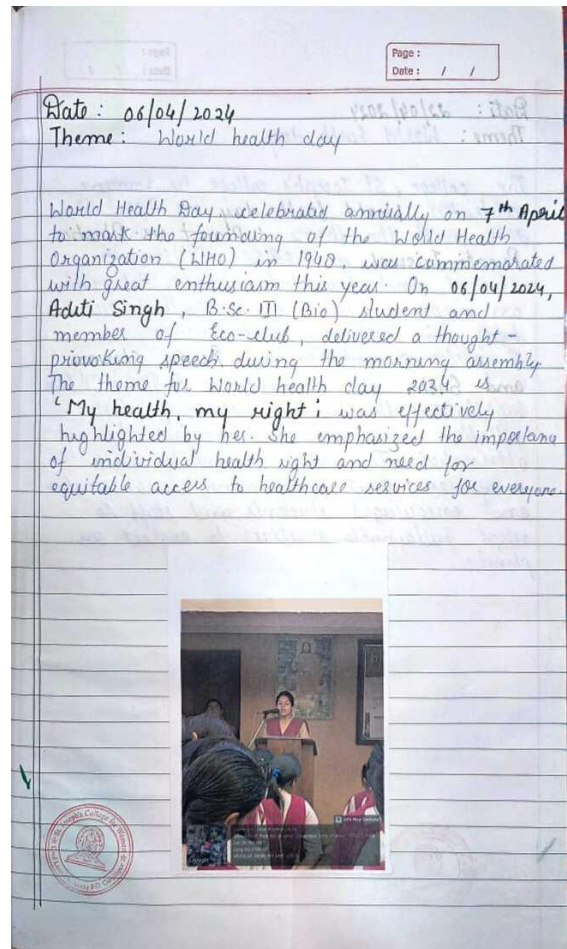 Page :
Date : / /
Date : 06/04/2024
Theme : World health day
World Health Day, celebrated annually on 7th April
to mark the founding of the World Health
Organization (WHO) in 1948, was commemorated
with great enthusiasm this year. On 06/04/2024,
Aditi Singh, B.Sc. III (Bio) student and
member of Eco-club, delivered a thought-
provoking speech during the morning assembly
The theme for World health day 2024 is
"My health, my right" was effectively
highlighted by her. She emphasized the importance
of individual health right and need for
equitable access to healthcare services for everyone.
St. Joseph's College for Women
GPS Map Camera
Google